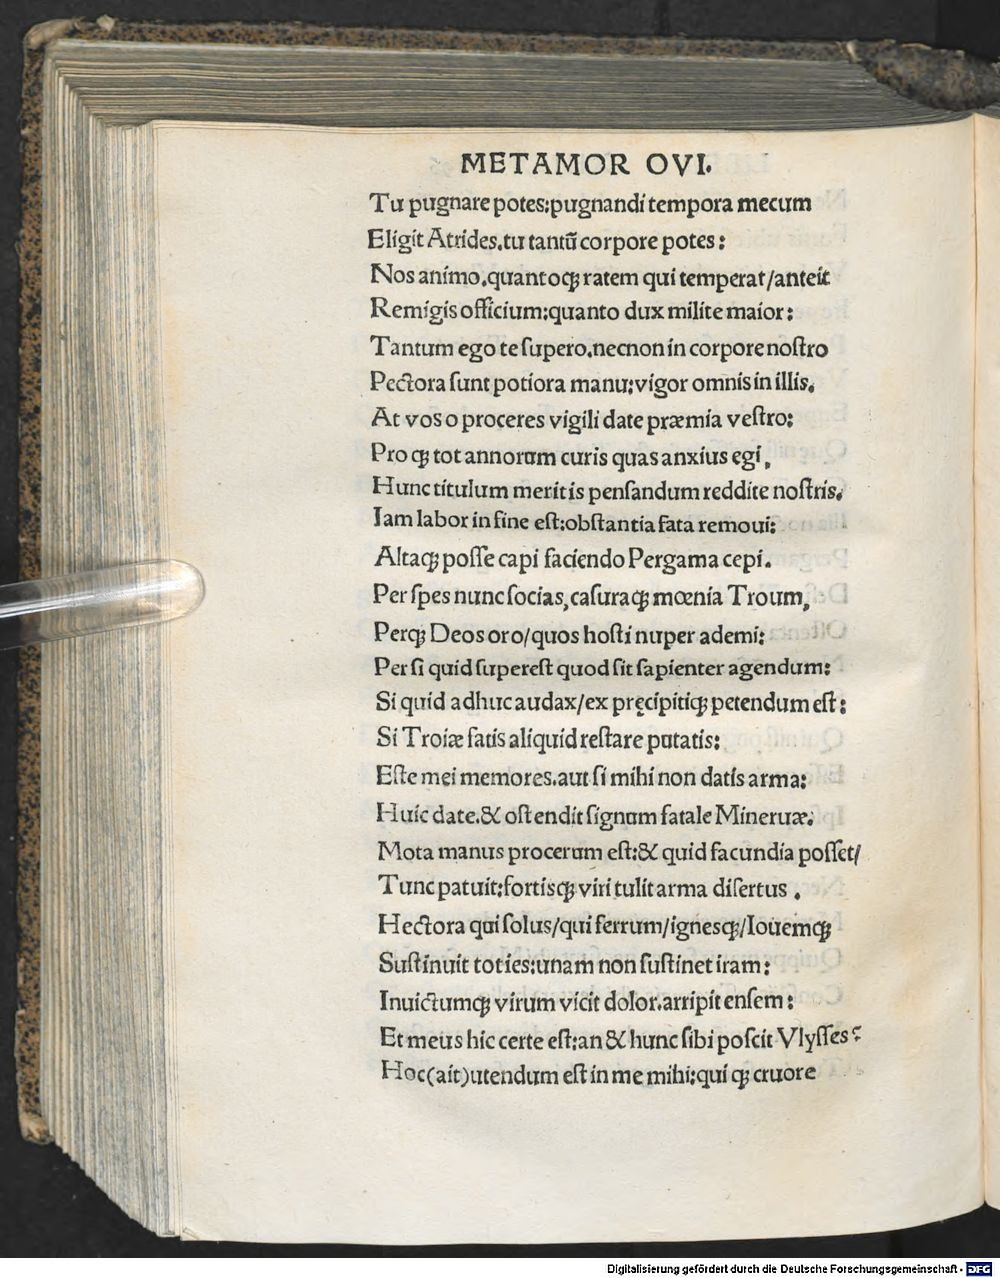 METAMOR OVI.
Tu pugnare potes:pugnandi tempora mecum
Eligit Atrides.tu tantũ corpore potes:
Nos animo.quantoqꝫ ratem qui temperat/anteit
Remigis officium:quanto dux milite maior:
Tantum ego te ſupero.necnon in corpore noſtro
Pectora ſunt potiora manu:vigor omnis in illis.
At vos o proceres vigili date præmia veſtro:
Pro qꝫ tot annorum curis quas anxius egi,
Hunc titulum meritis penſandum reddite noſtris.
Iam labor in fine eſt:obſtantia fata remoui:
Altaqꝫ poſſe capi faciendo Pergama cepi.
Per ſpes nunc ſocias,caſuraqꝫ mœnia Troum,
Perqꝫ Deos oro/quos hoſti nuper ademi:
Per ſi quid ſupereſt quod ſit ſapienter agendum:
Si quid adhuc audax/ex pręcipitiqꝫ petendum eſt:
Si Troiæ fatis aliquid reſtare putatis:
Eſte mei memores.aut ſi mihi non datis arma:
Huic date.& oſtendit ſignum fatale Mineruæ.
Mota manus procerum eſt:& quid facundia poſſet/
Tunc patuit:fortisqꝫ viri tulit arma diſertus.
Hectora qui ſolus/qui ferrum/ignesqꝫ/Iouemqꝫ
Suſtinuit toties:unam non ſuſtinet iram:
Inuictumqꝫ virum vicit dolor.arripit enſem:
Et meus hic certe eſt:an & hunc ſibi poſcit Vlyſſes?
Hoc(ait)utendum eſt in me mihi:qui qꝫ cruore
Digitalisierung gefördert durch die Deutsche Forschungsgemeinschaft - DFG